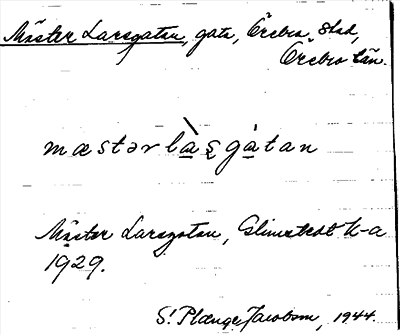 Mäster Larsgatan, gata, Örebro stad,
Örebro län.
mæstərlàʂgàtan
Mäster Larsgatan, Glimstedt K-a
1929.
S. Plænge Jacobson, 1944.